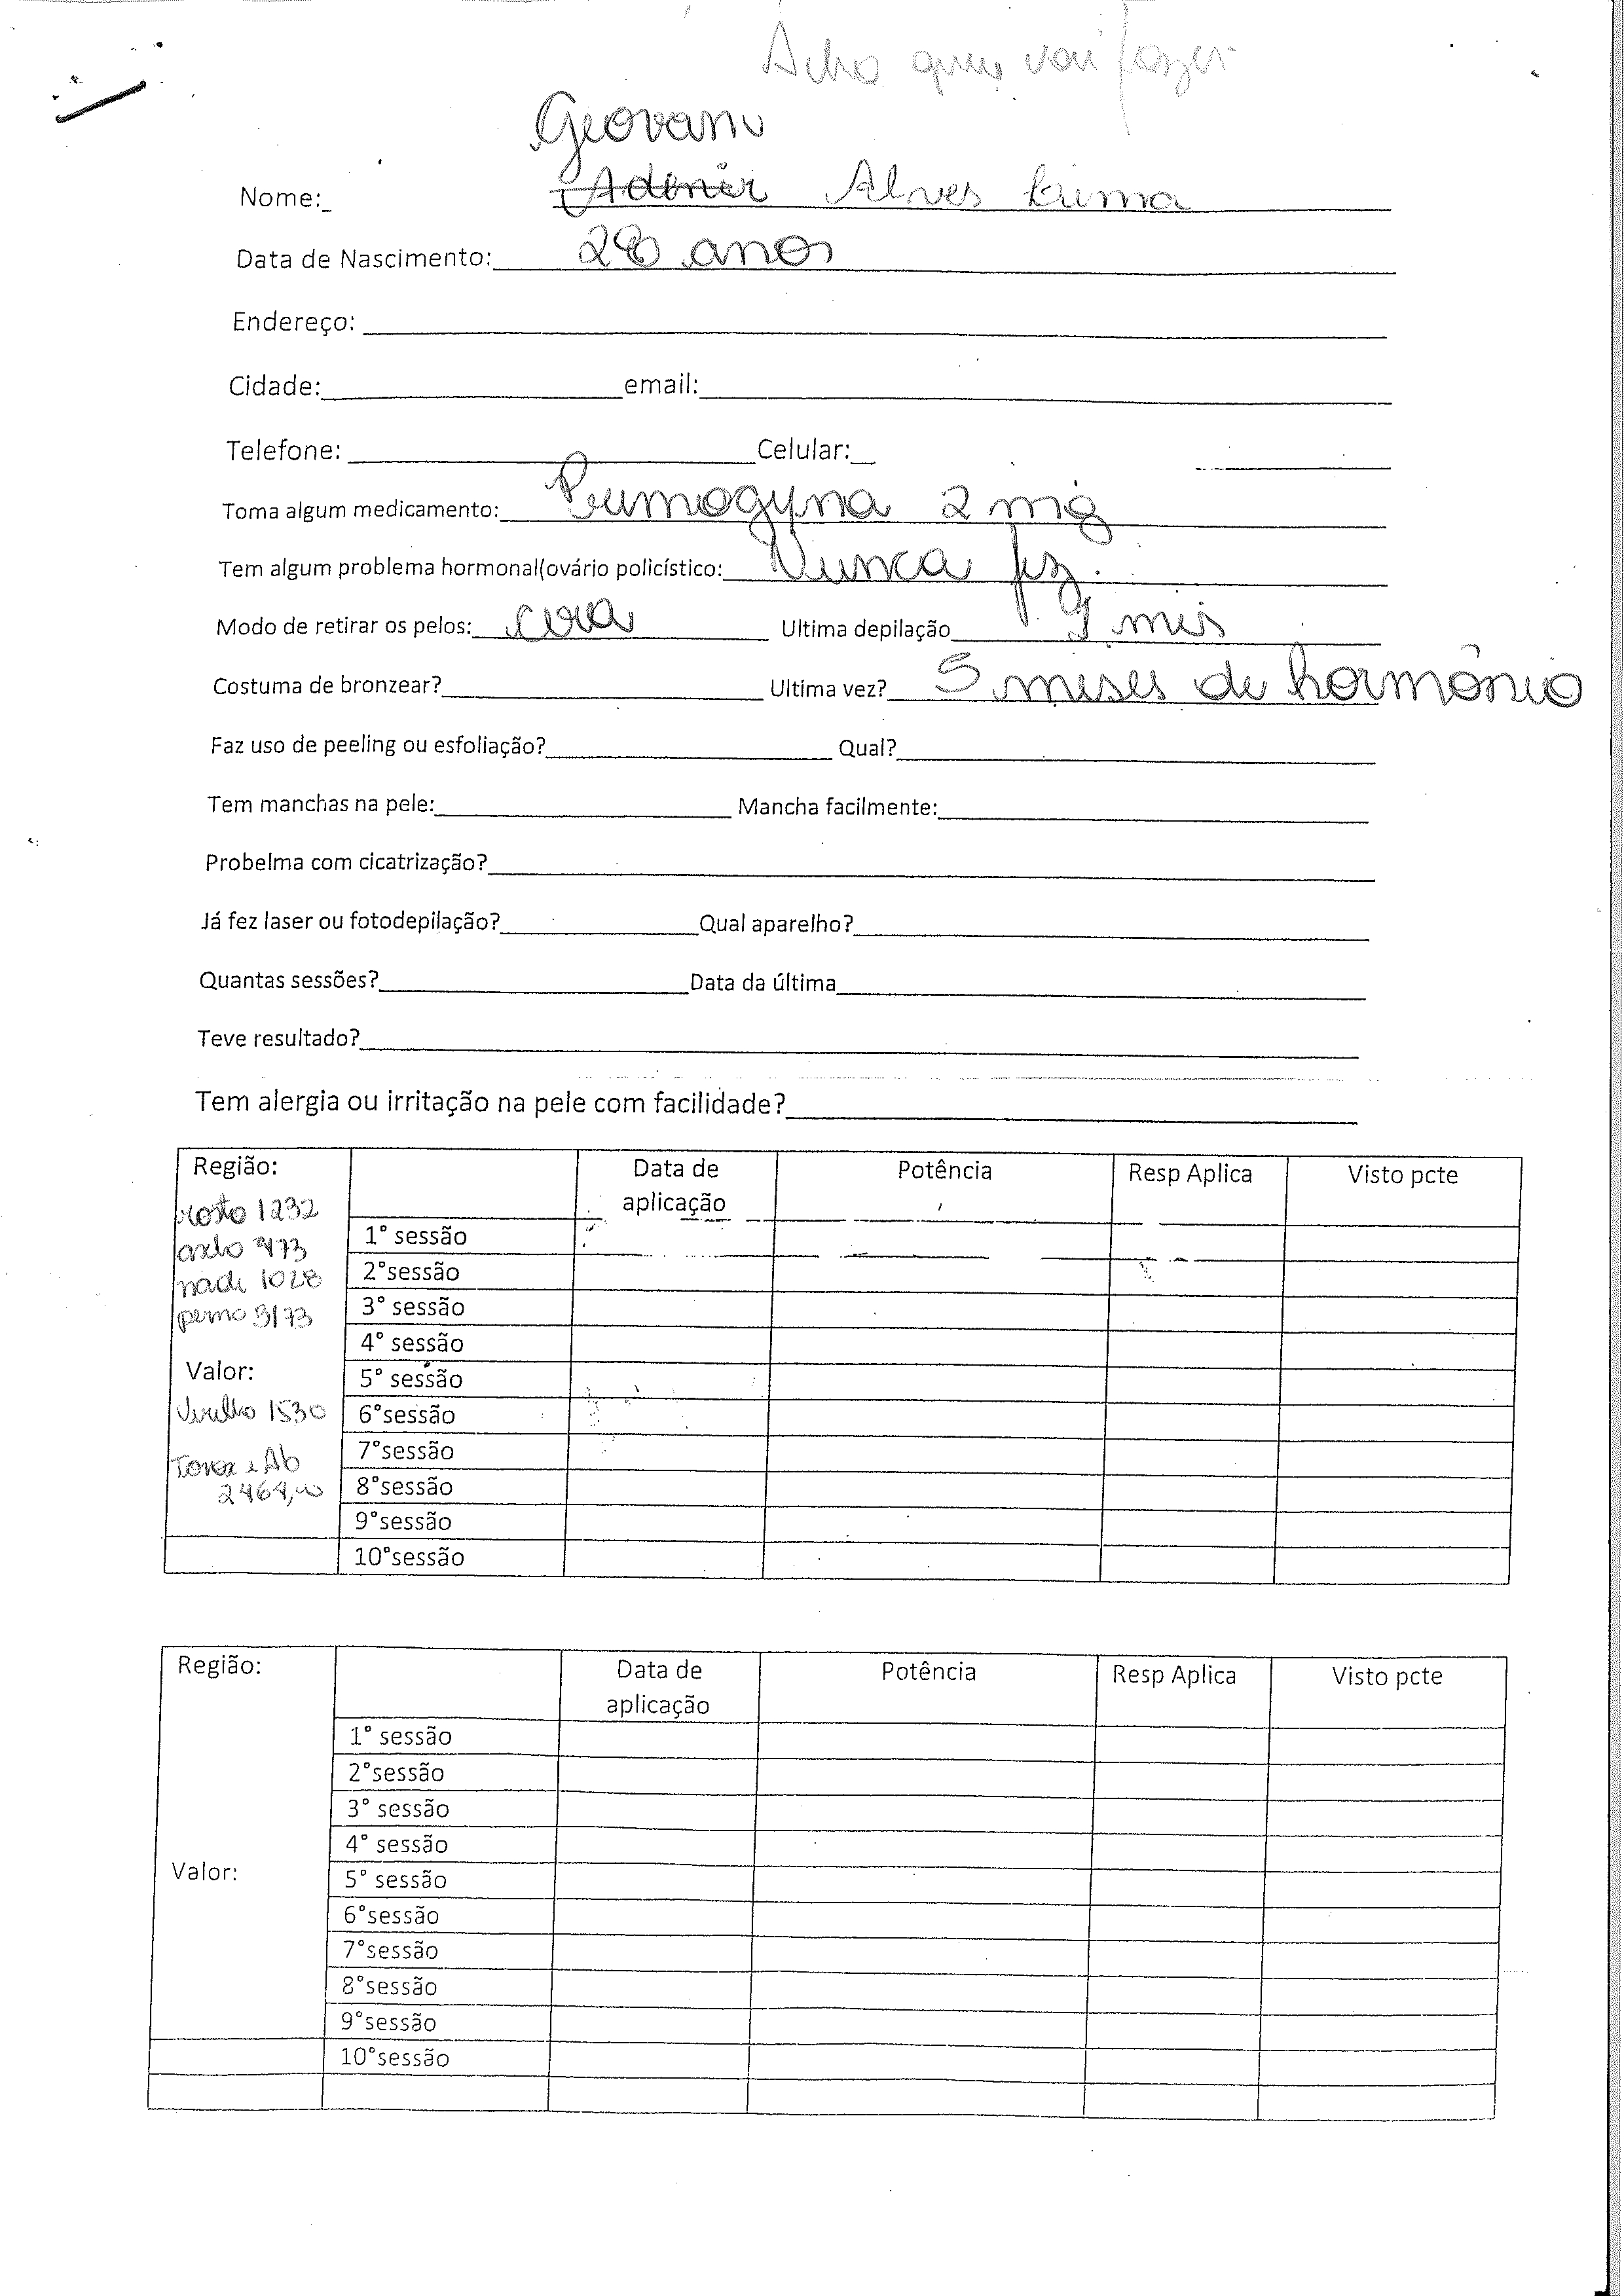 Acho que vai fazer
Geovani
Nome:_ Ademir Alves Lima
Data de Nascimento: 28 anos
Endereço:
Cidade: email:
Telefone: Celular:
Toma algum medicamento: Primogyna 2 mg
Tem algum problema hormonal(ovário policístico: Nunca fez.
Modo de retirar os pelos: cera Ultima depilação 1 mês
Costuma de bronzear? Ultima vez? 5 meses de hormônio
Faz uso de peeling ou esfoliação? Qual?
Tem manchas na pele: Mancha facilmente:
Probelma com cicatrização?
Já fez laser ou fotodepilação? Qual aparelho?
Quantas sessões? Data da última
Teve resultado?
Tem alergia ou irritação na pele com facilidade?
Região: Data de aplicação Potência Resp Aplica Visto pcte
rosto 1232
1° sessão
973
2°sessão
1028
3° sessão
3173
4° sessão
Valor:
5° sessão
Virilha 1530
6°sessão
7°sessão
Torax e Ab
8°sessão
2464,00
9°sessão
10°sessão
Região: Data de aplicação Potência Resp Aplica Visto pcte
1° sessão
2°sessão
3° sessão
4° sessão
Valor:
5° sessão
6°sessão
7°sessão
8°sessão
9°sessão
10°sessão